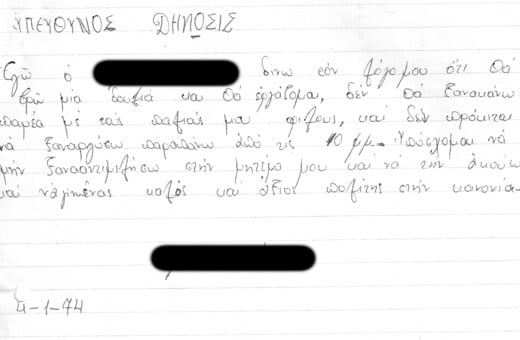 ΥΠΕΥΘΥΝΟΣ ΔΗΛΟΣΙΣ
Εγώ ὁ δινω τόν λόγο μου ὅτι θά
βρῶ μία δουλιά και θά ἐργάζομαι, δέν θά ξανακάνω
παρέα με τούς παλιούς μου φίλους, και δέν πρόκιται
νά ξαναργήσω παραπάνω ἀπό τις 10 μ.μ. Υπόσχομαι νά
μήν ξαναατιμιζήσω στήν μητέρα μου καί νά τήν ἀκούω
καί νά γίνω ἕνας καλός καί ἄξιος πολίτης στήν κοινονία
4-1-74